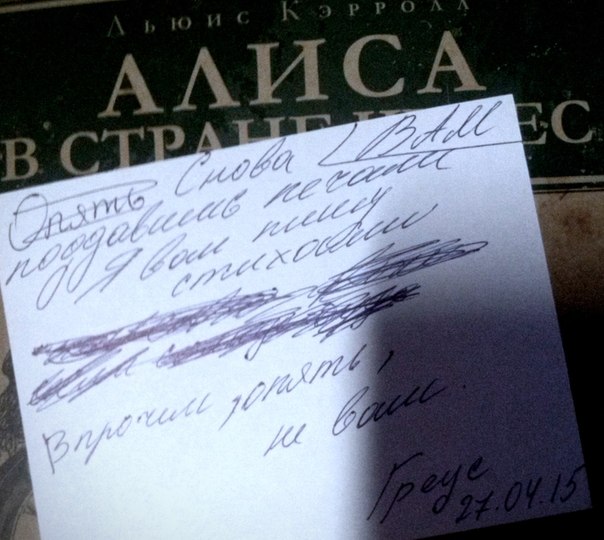 Льюис Кэрролл
АЛИСА
В СТРАНЕ ЕС
Опять Снова ВАМ
поддавшись печали
Я вам пишу
стихами
Впрочим, опять,
не вам.
Греус
27.04.15